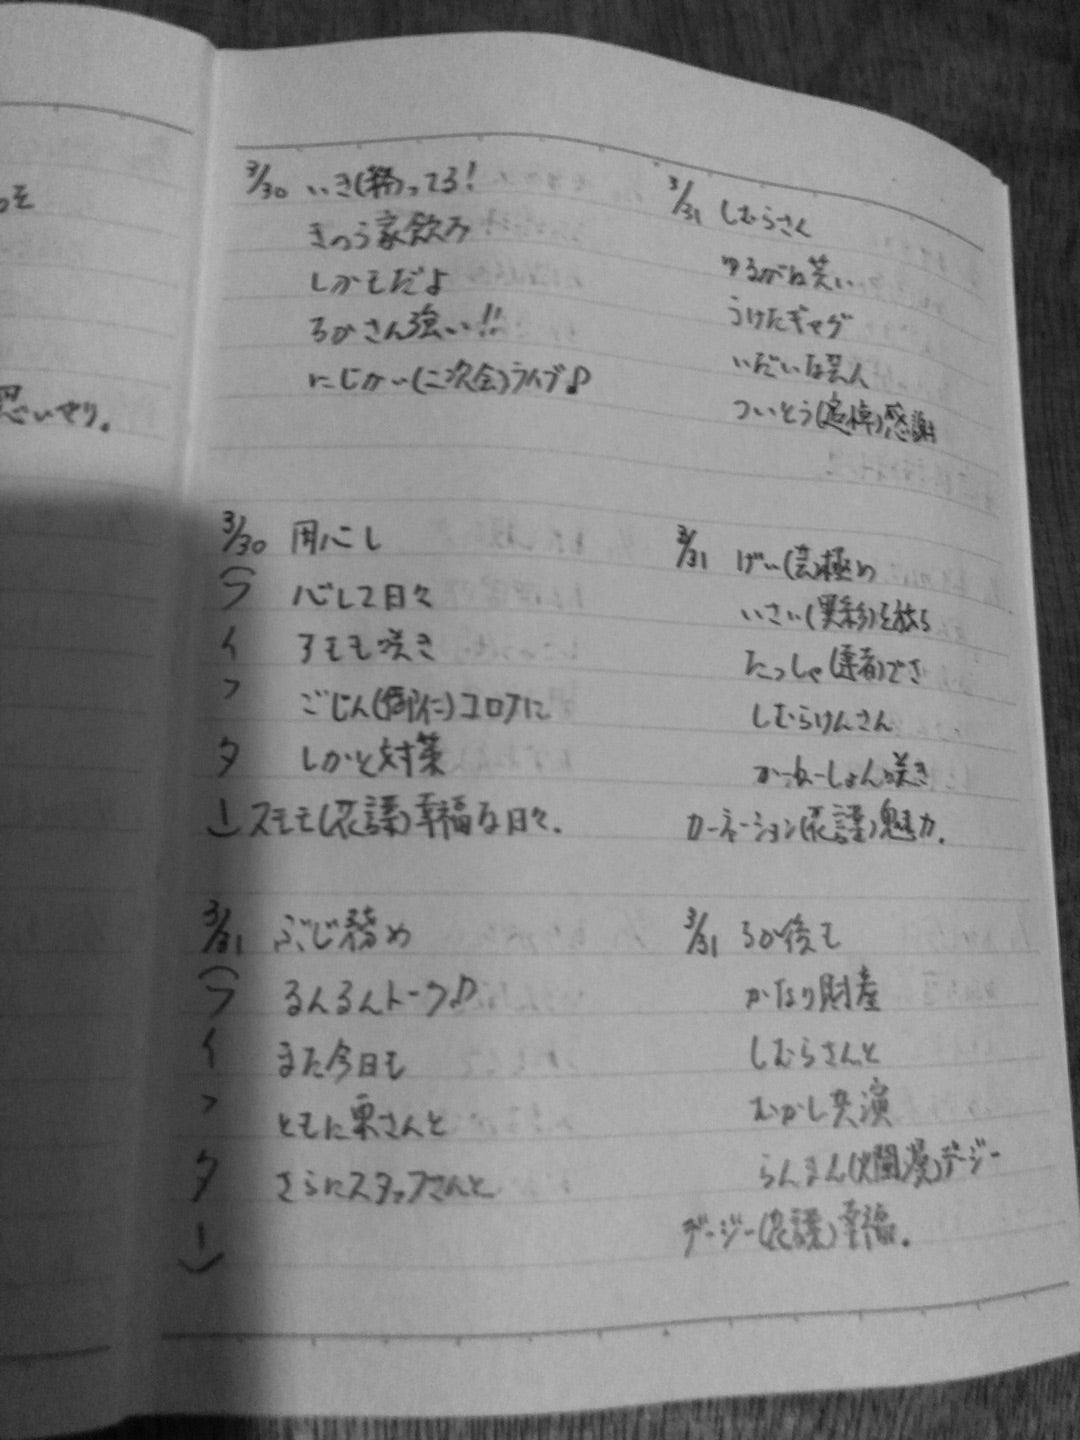 っそ
思いやり。
3/30 いき(粋)ってる!
きのう家飲み
しかもだよ
るかさん強い!!
にじかい(二次会)ライブ♪
3/30 用心し
(ライブター) 心して日々
スモモ咲き
ごじん(御仁)コロナに
しかと対策
スモモ(花言葉)幸福な日々。
3/31 ぶじ務め
(ライブター) るんるんトーク♪
また今日も
ともに栗さんと
さらにスタッフさんと
3/31 しむらさん
ゆるがな笑い
うけたギャグ
いだいな芸人
ついとう(追悼)感謝
3/31 げい(芸)極め
いさい(異彩)を放る
たっしゃ(達者)でさ
しむらけんさん
かーねーしょん咲き
カーネーション(花言葉)魅力。
3/31 るか後も
かなり財産
しむらさんと
むかし共演
らんまん(爛漫)デージー
デージー(花言葉)幸福。